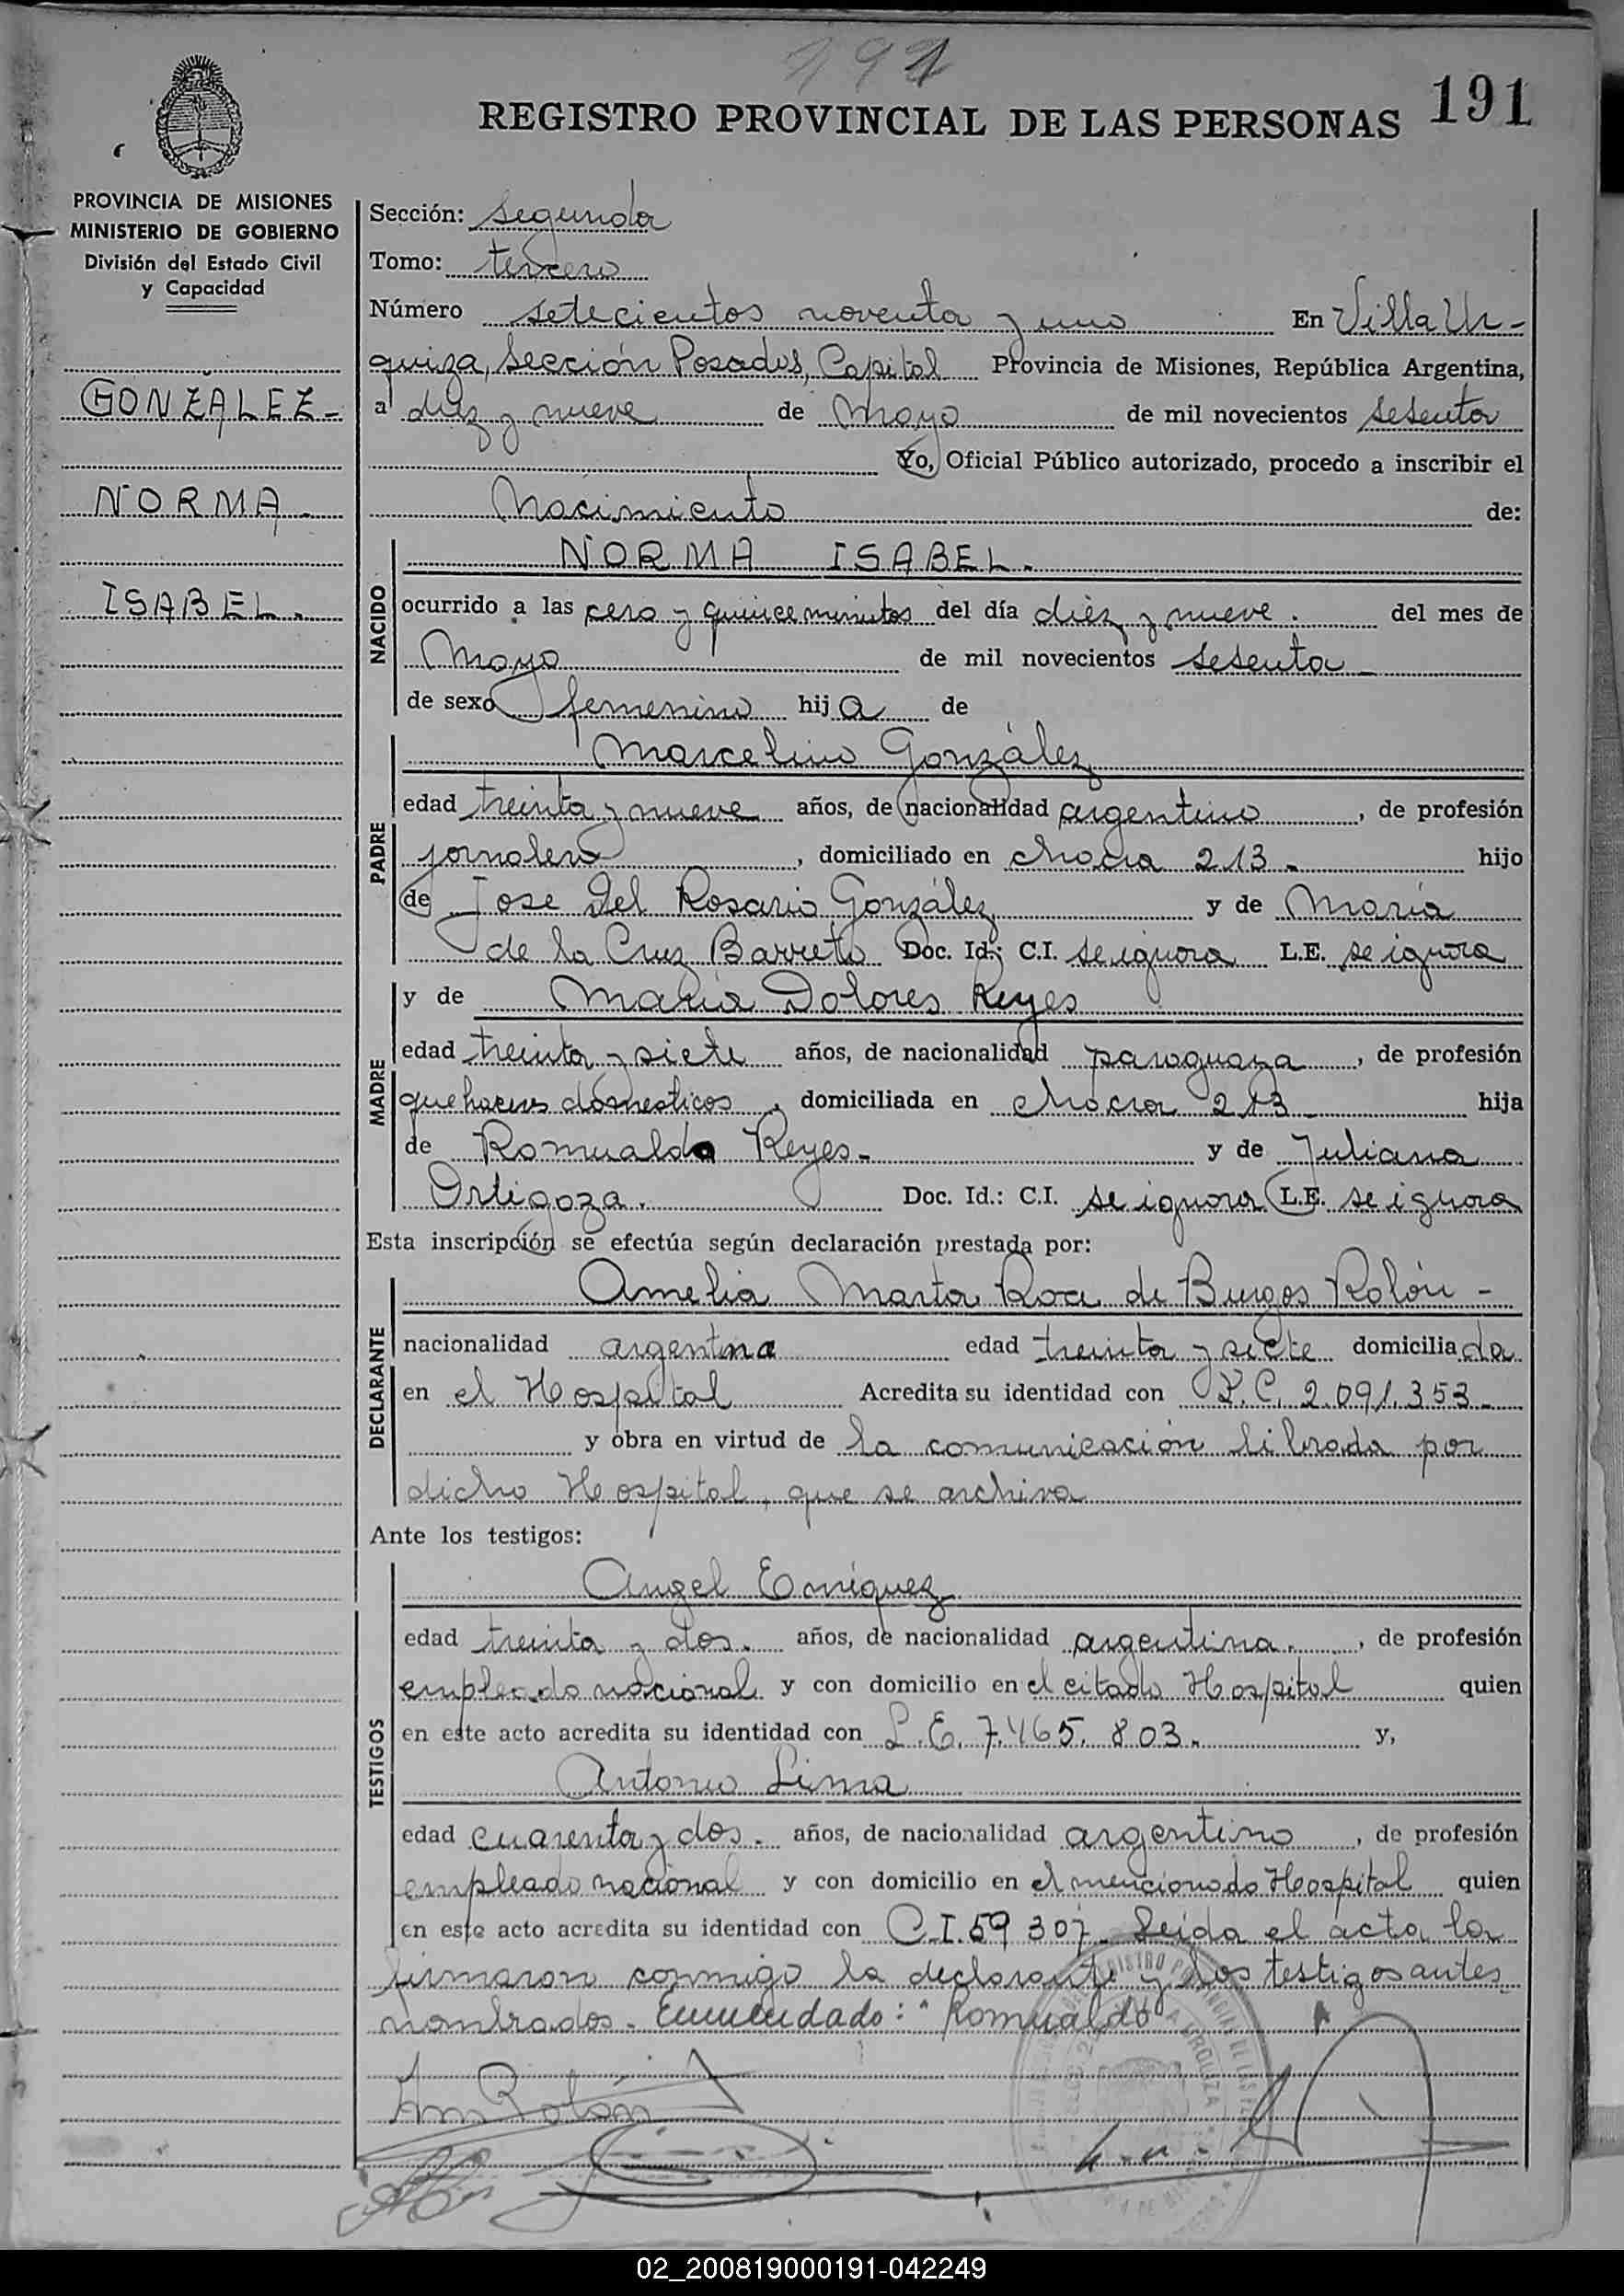 191
REGISTRO PROVINCIAL DE LAS PERSONAS 191
PROVINCIA DE MISIONES
MINISTERIO DE GOBIERNO
División del Estado Civil
y Capacidad
GONZÁLEZ-
NORMA-
ISABEL.
Sección: segunda
Tomo: tercero
Número setecientos noventa y uno En Villa Ur-
quiza, Sección Posadas, Capital Provincia de Misiones, República Argentina,
a diez y nueve de Mayo de mil novecientos sesenta
Yo, Oficial Público autorizado, procedo a inscribir el
Nacimiento de:
NACIDO
NORMA ISABEL.
ocurrido a las cero y quince minutos del día diez y nueve. del mes de
Mayo de mil novecientos sesenta
de sexo femenino hija de
PADRE
Marcelino González
edad treinta y nueve años, de nacionalidad argentino, de profesión
jornalero, domiciliado en chacra 213- hijo
de Jose Del Rosario González y de María
de la Cruz Barreto Doc. Id.: C.I. se ignora L.E. se ignora
MADRE
y de María Dolores Reyes
edad treinta y siete años, de nacionalidad paraguaya, de profesión
quehaceres domésticos, domiciliada en chacra 213 hija
de Romualdo Reyes- y de Juliana
Ortigoza. Doc. Id.: C.I. se ignora L.E. se ignora
Esta inscripción se efectúa según declaración prestada por:
DECLARANTE
Amelia Marta Roa de Burgos Rolón -
nacionalidad argentina edad treinta y siete domiciliada
en el Hospital Acredita su identidad con L.C. 2.091.353-
y obra en virtud de la comunicación librada por
dicho Hospital, que se archiva
Ante los testigos:
TESTIGOS
Angel Enriquez
edad treinta y dos. años, de nacionalidad argentina., de profesión
empleado nacional y con domicilio en el citado Hospital quien
en este acto acredita su identidad con L.E. 7.465.803- y,
Antonio Lima
edad cuarenta y dos. años, de nacionalidad argentino, de profesión
empleado nacional y con domicilio en el mencionado Hospital quien
en este acto acredita su identidad con C.I. 59 307- Leida el acta la
firmaron conmigo la declarante y los testigos antes
nombrados- Enmendado: "Romualdo"
Am Rolón
02_200819000191-042249